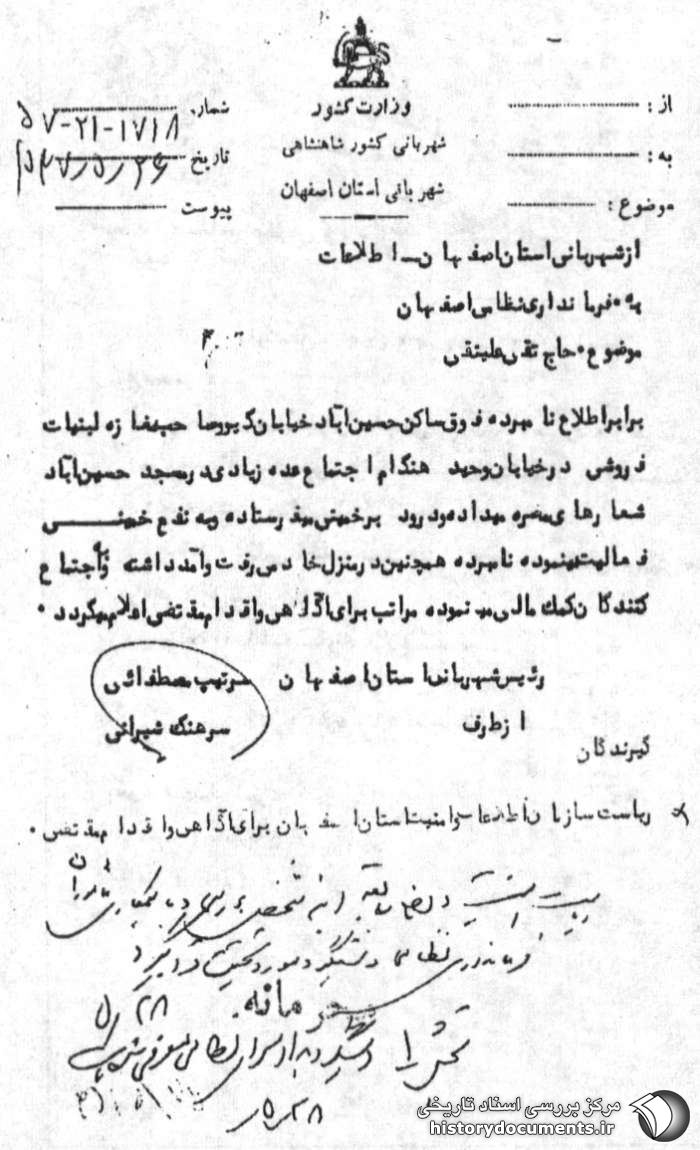 وزارت کشور
شهربانی کشور شاهنشاهی
شهربانی استان اصفهان
از :
به :
موضوع :
شماره ۵۷-۲۱-۱۷۱۸
تاریخ ۳۷/۵/۲۶
پیوست
از شهربانی استان اصفهان - اطلاعات
به فرمانداری نظامی اصفهان
موضوع حاج تقی علینقی
برابر اطلاع نامبرده فوق ساکن حسین آباد خیابان گیو روسا صاحب مغازه لبنیات
فروشی در خیابان وحید هنگام اجتماع عده زیادی در مسجد حسین آباد
شعارهای مضره میداده و درود بر خمینی میفرستاده و به نفع خمینی
فعالیت مینموده نامبرده همچنین در منزل خادمی رفت و آمد داشته و با اجتماع
کنندگان کمک مالی مینموده مراتب برای آگاهی و اقدام مقتضی اعلام میگردد .
رئیس شهربانی استان اصفهان سرتیپ مصطفائی
از طرف سرهنگ شیرانی
گیرندگان
ریاست سازمان اطلاعات و امنیت استان اصفهان برای آگاهی و اقدام مقتضی .
فرمانداری نظامی دستگیر و مورد تحقیق قرار گیرد
محرمانه
۲۸/۵
۲۸/۵
مرکز بررسی اسناد تاریخی
historydocuments.ir